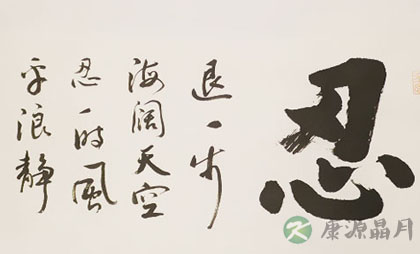 忍
退一步
海阔天空
忍一时風
平浪静
康源晶月